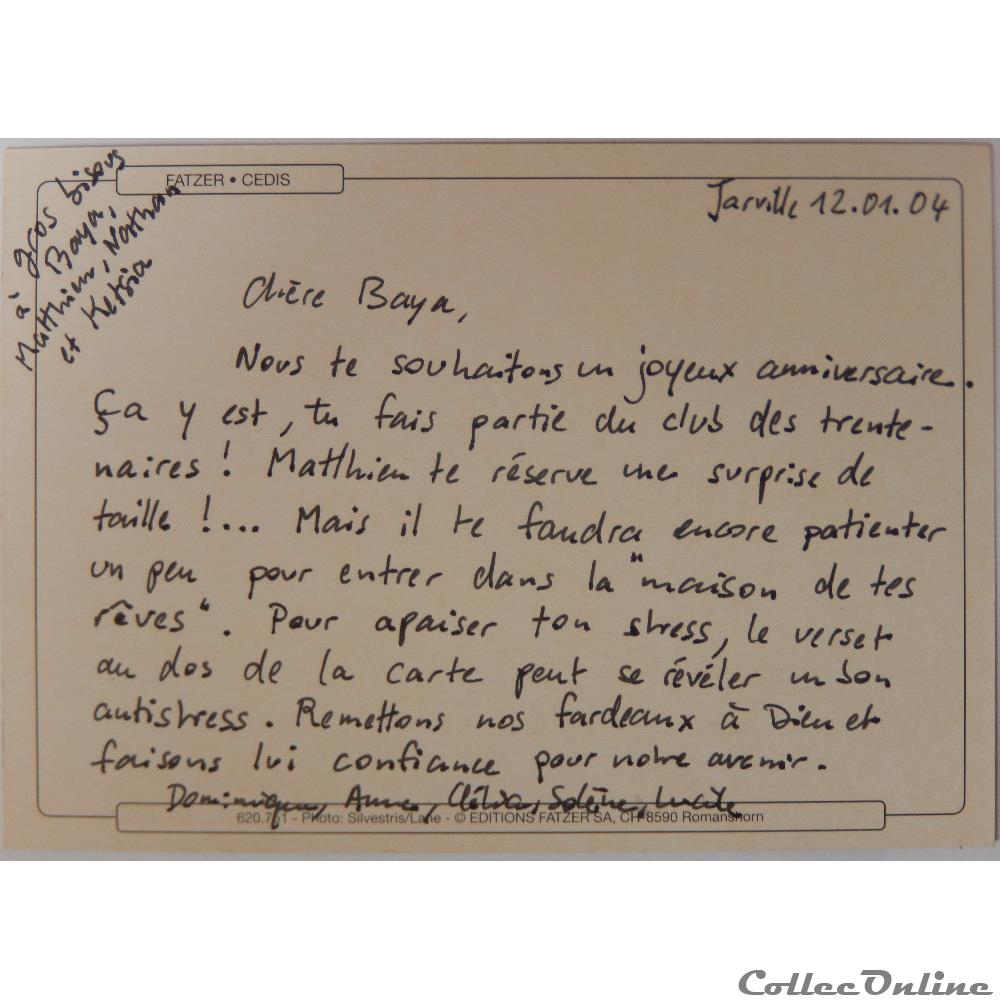 FATZER • CEDIS
gros bisous
à Baya,
Matthieu, Nathan
et Ketsia
Jarville 12.01.04
Chère Baya,
Nous te souhaitons un joyeux anniversaire.
Ça y est, tu fais partie du club des trente-
naires ! Matthieu te réserve une surprise de
taille !... Mais il te faudra encore patienter
un peu pour entrer dans la "maison de tes
rêves". Pour apaiser ton stress, le verset
au dos de la carte peut se révéler un bon
antistress. Remettons nos fardeaux à Dieu et
faisons lui confiance pour notre avenir.
Dominique, Anne, Clélia, Solène, Lucile
620.751 - Photo: Silvestris/Lane - © EDITIONS FATZER SA, CH-8590 Romanshorn
CollecOnline